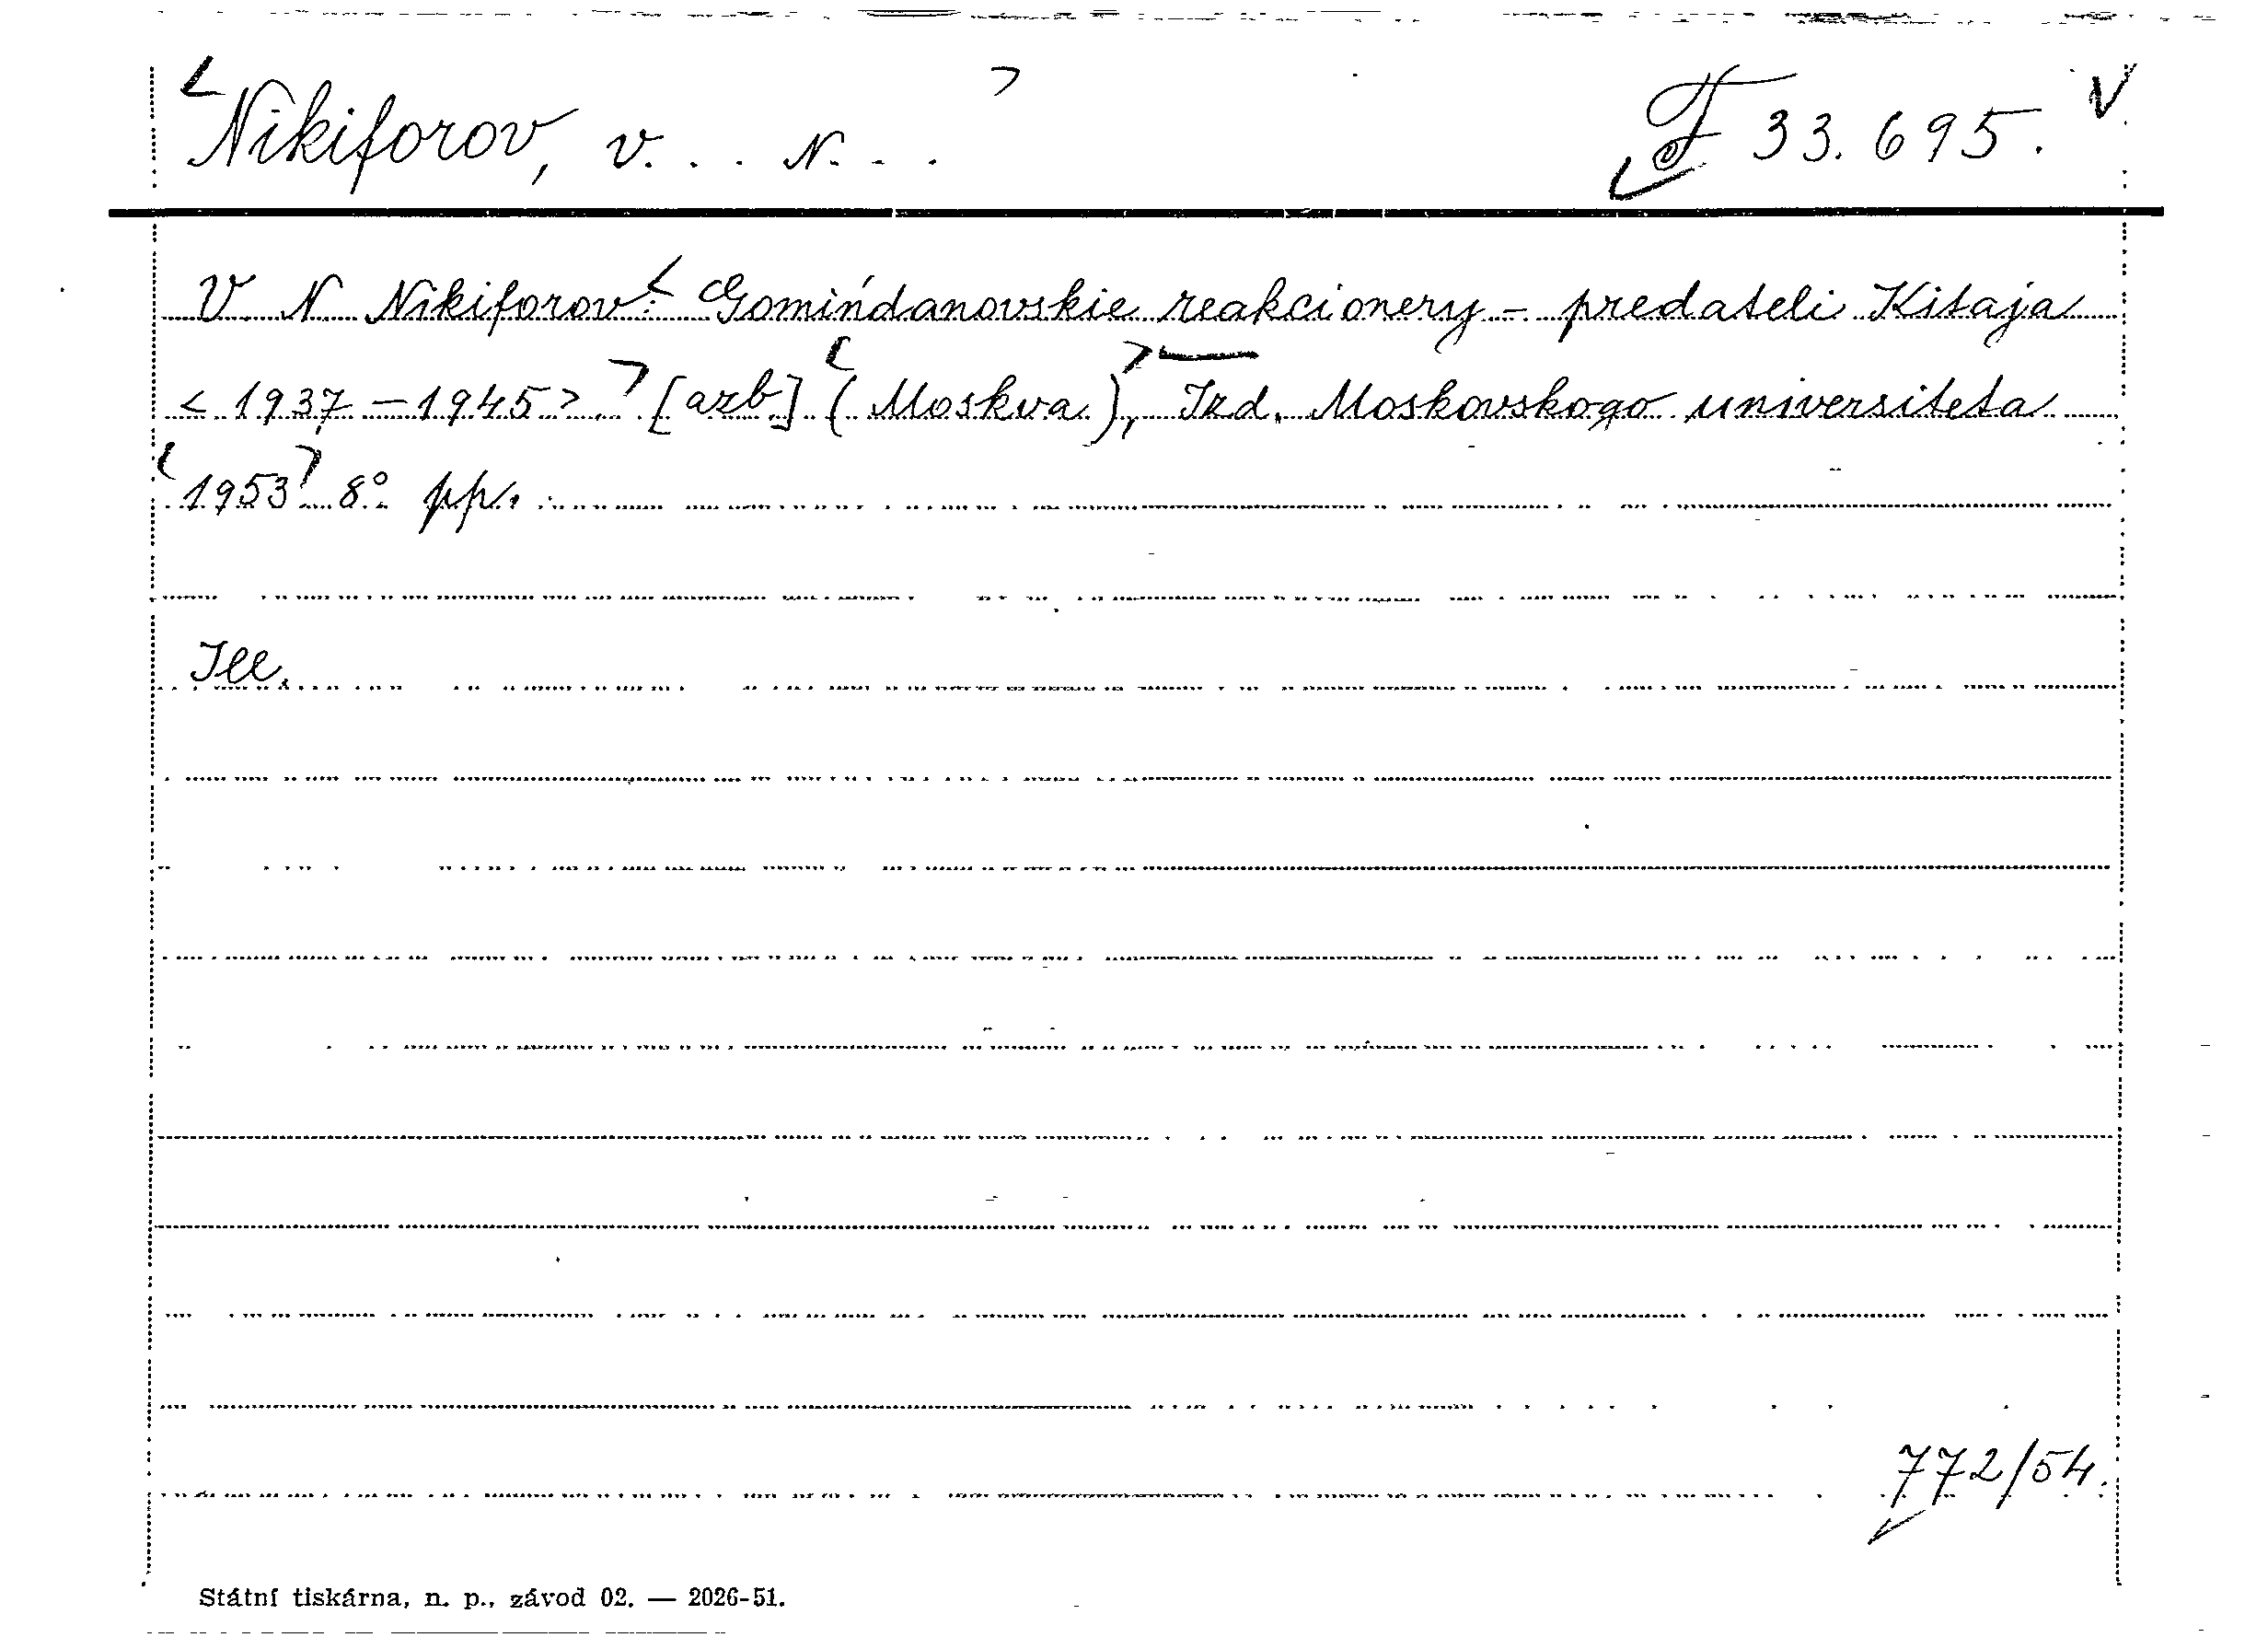 Nikiforov, V... N... F 33.695.
V. N. Nikiforov: Gomińdanovskie reakcionery - predateli Kitaja
<1937-1945>. [azb] (Moskva), Izd. Moskovskogo universiteta
1953 8° pp.
Ill.
772/54.
Státní tiskárna, n. p., závod 02. — 2026-51.